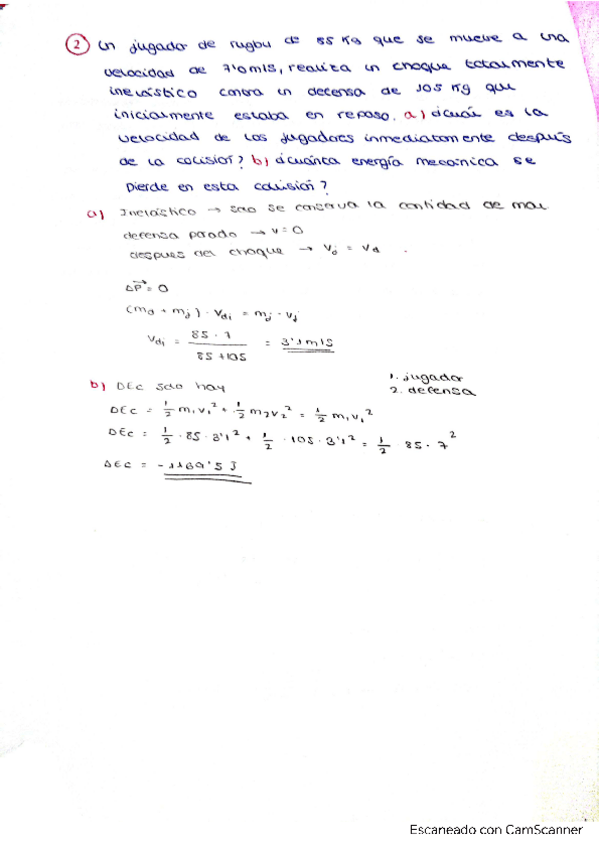 2 Un jugador de rugby de 85 Kg que se mueve a una
velocidad de 7'0 m/s, realiza un choque totalmente
inelástico contra un defensa de 105 Kg que
inicialmente estaba en reposo. a) ¿cuál es la
velocidad de los jugadores inmediatamente después
de la colisión? b) ¿cuánta energía mecánica se
pierde en esta colisión?
a) Inelástico → solo se conserva la cantidad de mov
defensa parado → v = 0
despues del choque → Vj = Vd .
ΔP⃗ = 0
(md + mj) · Vdj = mj · vj
Vdj = 85 · 7 / 85 + 105 = 3'1 m/s
b) ΔEc solo hay
1. jugador
2. defensa
ΔEc = 1/2 m1 v1² + 1/2 m2 v2² = 1/2 m1 v1²
ΔEc = 1/2 · 85 · 3'1² + 1/2 · 105 · 3'1² = 1/2 · 85 · 7²
ΔEc = -1169'5 J
Escaneado con CamScanner